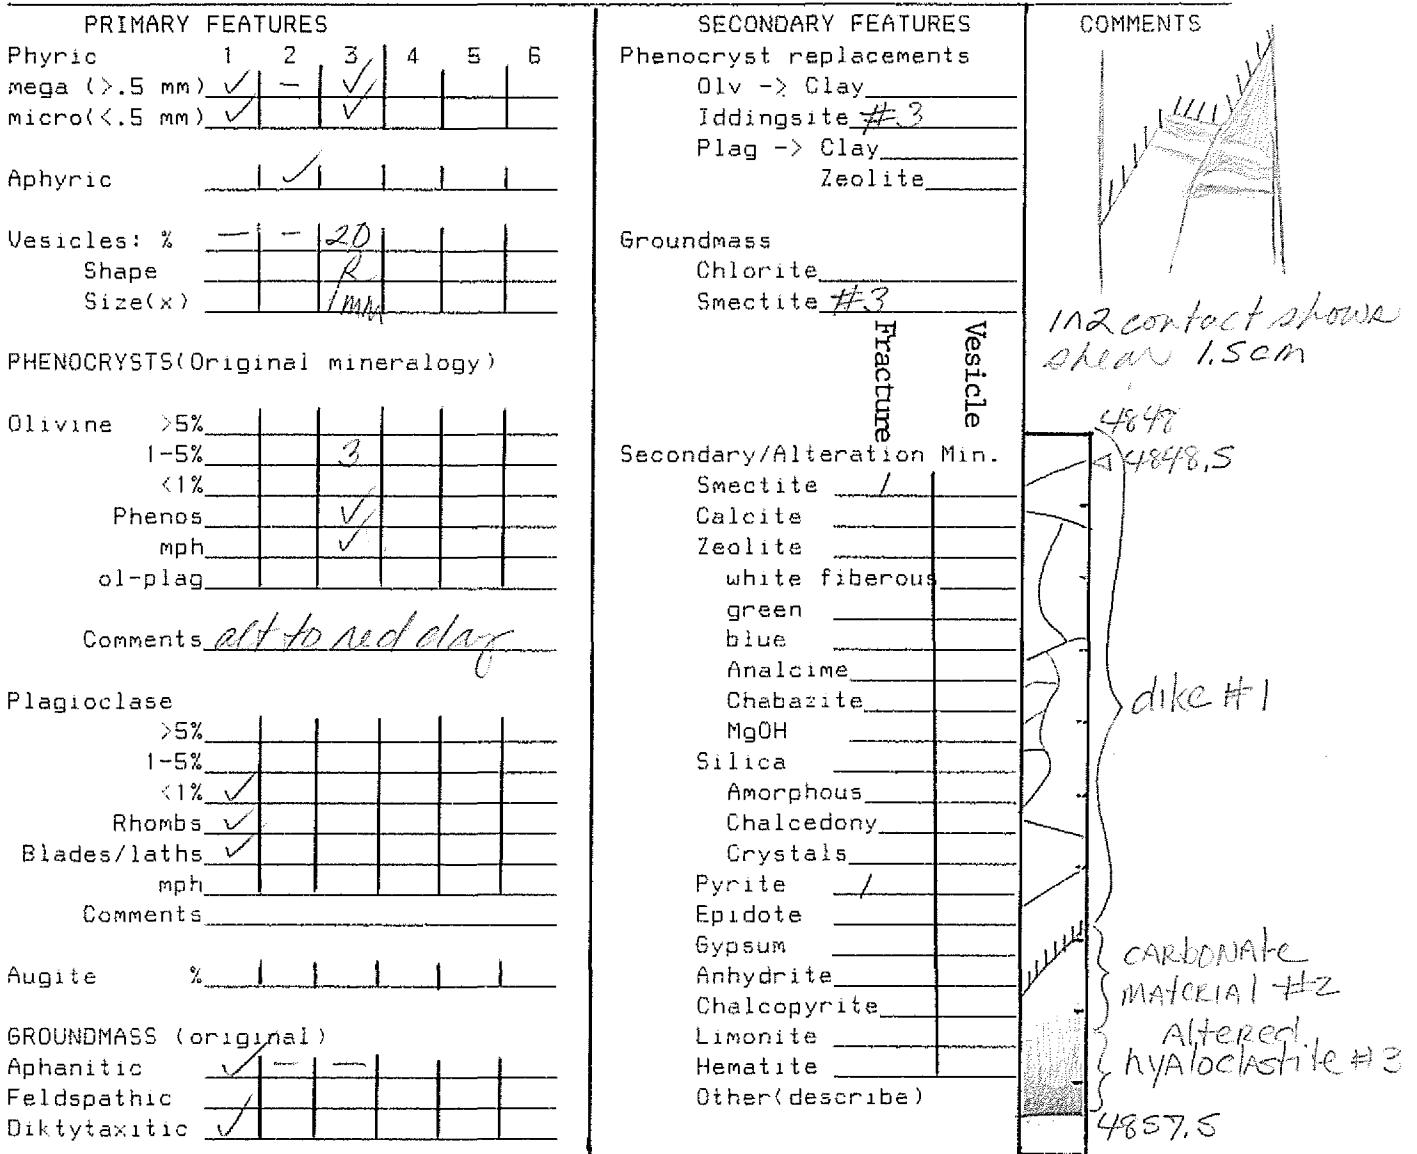 PRIMARY FEATURES
Phyric 1 2 3 4 5 6
mega (>.5 mm) ✓ - ✓
micro(<.5 mm) ✓ ✓
Aphyric ✓
Vesicles: % — - 20
Shape R
Size(x) 1mm
PHENOCRYSTS(Original mineralogy)
Olivine >5%
1-5% 3
<1%
Phenos ✓
mph ✓
ol-plag
Comments alt to red clay
Plagioclase
>5%
1-5%
<1% ✓
Rhombs ✓
Blades/laths ✓
mph
Comments
Augite %
GROUNDMASS (original)
Aphanitic ✓ - —
Feldspathic
Diktytaxitic ✓
SECONDARY FEATURES
Phenocryst replacements
Olv -> Clay
Iddingsite #3
Plag -> Clay
Zeolite
Groundmass
Chlorite
Smectite #3
Fracture
Vesicle
Secondary/Alteration Min.
Smectite /
Calcite
Zeolite
white fiberous
green
blue
Analcime
Chabazite
MgOH
Silica
Amorphous
Chalcedony
Crystals
Pyrite /
Epidote
Gypsum
Anhydrite
Chalcopyrite
Limonite
Hematite
Other(describe)
COMMENTS
1n2 contact shows
shear 1.5cm
4848
4848.5
dike #1
CARBONATE
MATERIAL #2
Altered
hyAloclAstite #3
4857.5